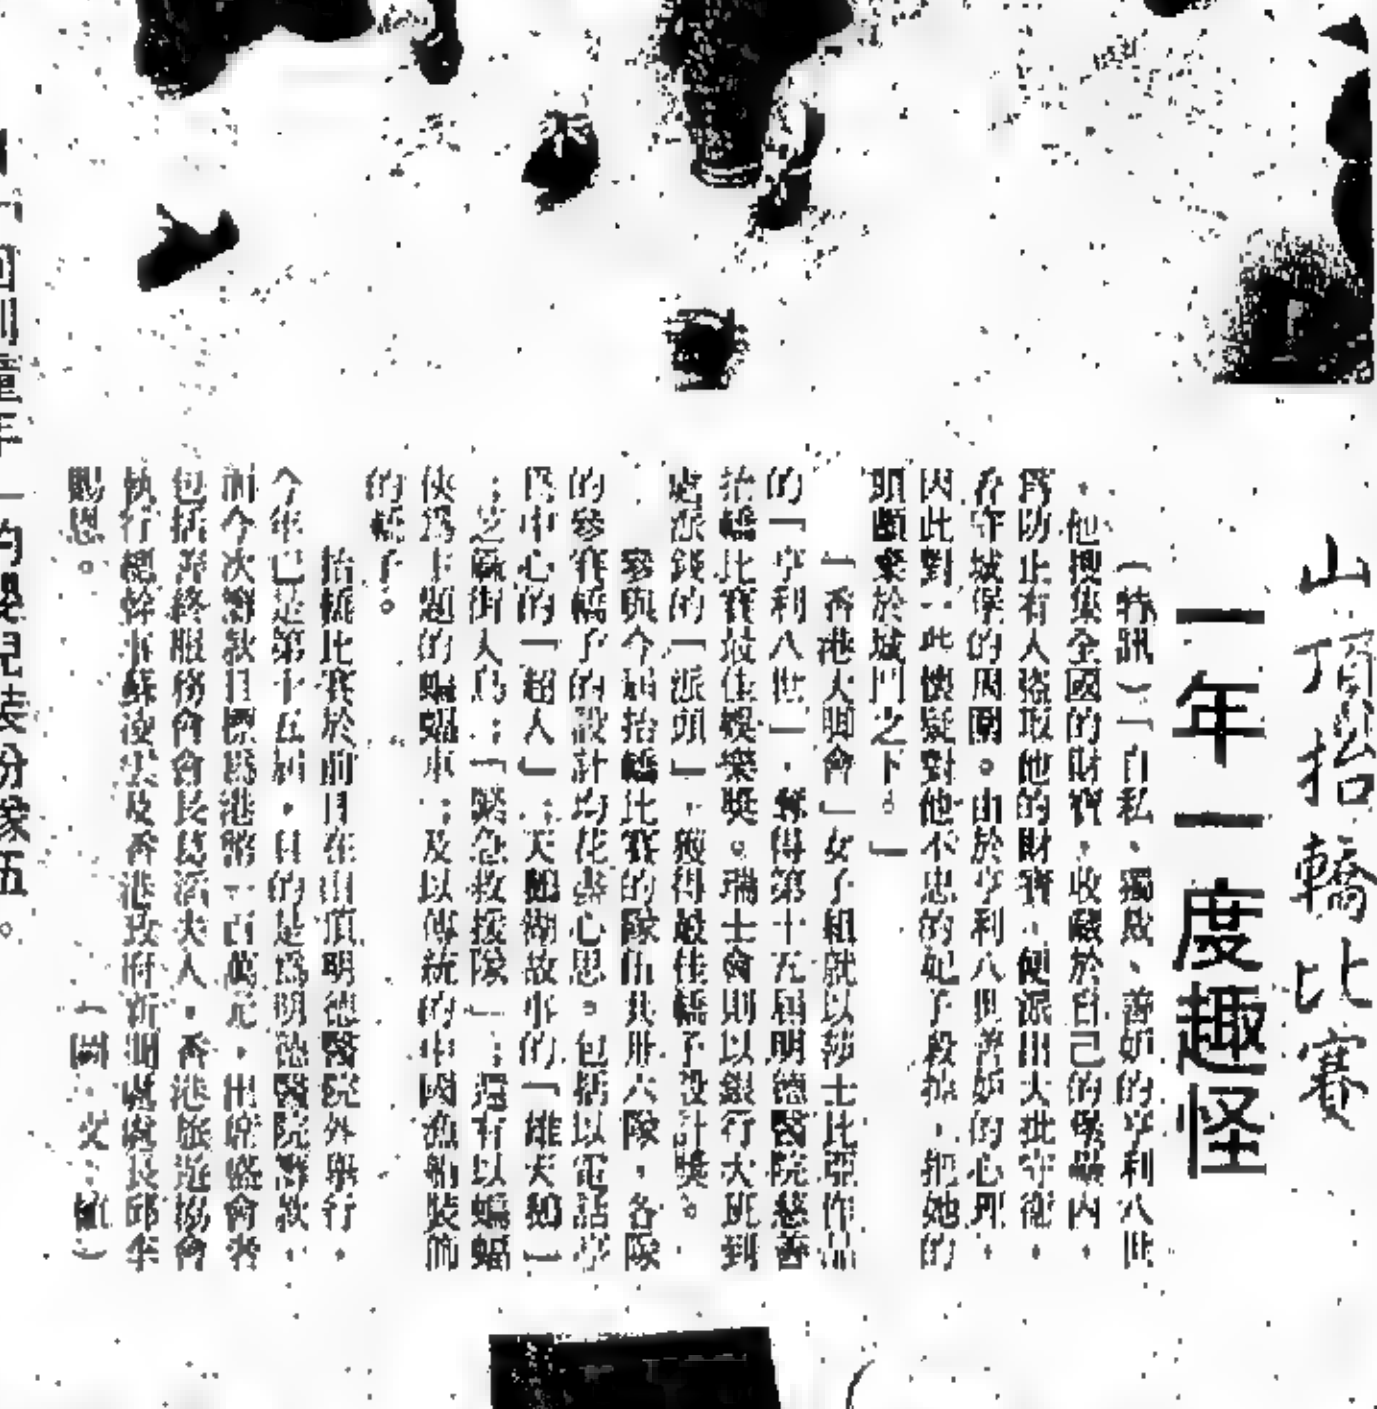 山頂抬轎比賽
一年一度趣怪
（特訊）「自私、獨裁、善妒的亨利八世
，他搜集全國的財寶，收藏於自己的堡壘內，
為防止有人盜取他的財寶，便派出大批守衛，
看守城堡的周圍。由於亨利八世善妒的心理，
因此對一些懷疑對他不忠的妃子殺掉，把她的
頭顱棄於城門之下。」
「香港大明會」女子組就以莎士比亞作品
的「亨利八世」，奪得第十五屆明德醫院慈善
抬轎比賽最佳娛樂獎。瑞士會則以銀行大班到
處派錢的「派頭」，獲得最佳轎子設計獎。
參與今屆抬轎比賽的隊伍共卅六隊，各隊
的參賽轎子的設計均花盡心思。包括以電話亭
為中心的「超人」；天鵝湖故事的「雄天鵝」
；芝麻街人鳥；「緊急救援隊」；還有以蝙蝠
俠為主題的蝙蝠車；及以傳統的中國漁船裝飾
的轎子。
抬轎比賽於前日在山頂明德醫院外舉行，
今年已是第十五屆，目的是為明德醫院籌款，
而今次籌款目標為港幣一百萬元，出席盛會者
包括善終服務會會長葛活夫人，香港旅遊協會
執行總幹事蘇凌雲及香港政府新聞處處長邱李
賜恩。 （圖、文：